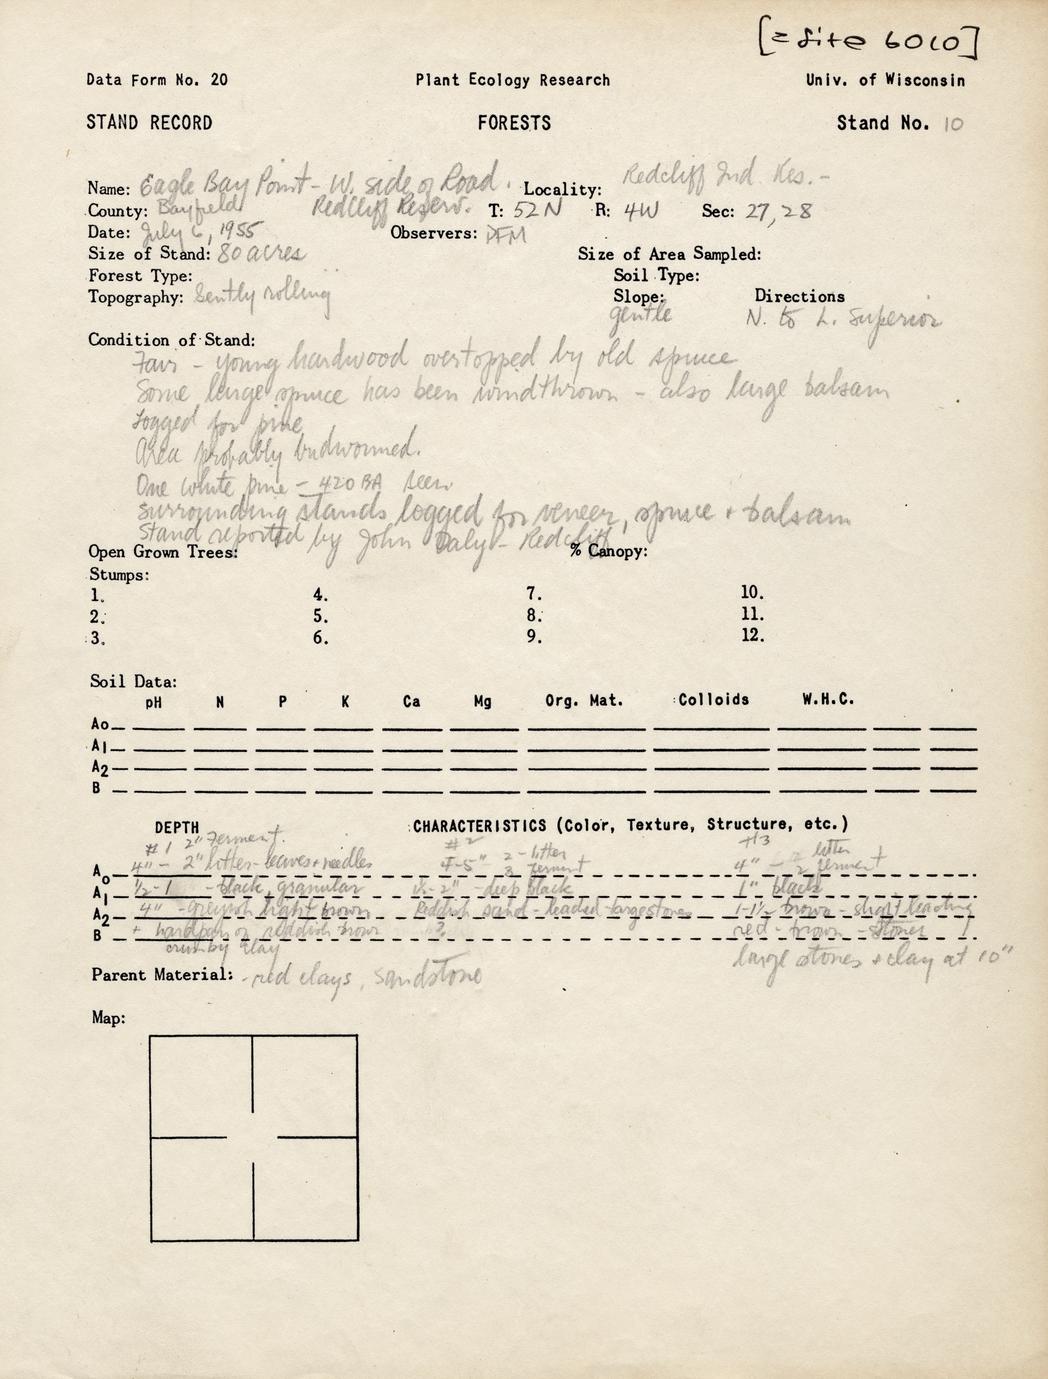 [= Site 6010]
Data Form No. 20 Plant Ecology Research Univ. of Wisconsin
STAND RECORD FORESTS Stand No. 10
Name: Eagle Bay Point - W. side of Road. Locality: Redcliff Ind. Res. -
County: Bayfield Redcliff Reserv. T: 52N R: 4W Sec: 27,28
Date: July 6, 1955 Observers: DFM
Size of Stand: 80 acres Size of Area Sampled:
Forest Type: Soil Type:
Topography: Gently rolling Slope: gentle Directions N. to L. Superior
Condition of Stand:
Fair - young hardwood overtopped by old spruce
Some large spruce has been windthrown - also large balsam
Logged for pine
Area probably budwormed.
One white pine - 420 BA seen
Surrounding stands logged for veneer, spruce + balsam
Stand reported by John Daly - Redcliff
Open Grown Trees: % Canopy:
Stumps:
1. 4. 7. 10.
2. 5. 8. 11.
3. 6. 9. 12.
Soil Data:
pH N P K Ca Mg Org. Mat. Colloids W.H.C.
Ao
A1
A2
B
DEPTH CHARACTERISTICS (Color, Texture, Structure, etc.)
#1 2" ferment. #2 #3
Ao 4" - 2" litter - leaves + needles 4-5" 2 - litter 3 ferment 4" - 2 litter 2 ferment
A1 1/2 - 1 - black, granular 1/2 - 2" - deep black 1" black
A2 4" - greyish light brown Reddish sand - leached - large stones 1-1 1/2 brown - slight leaching
B + hardpan of reddish brown ? red - brown - stones
crumby clay large stones + clay at 10"
Parent Material: - red clays, sandstone
Map: